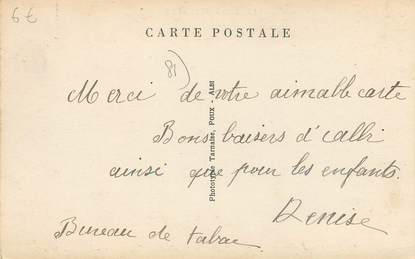 6€
CARTE POSTALE
81)
Merci de votre aimable carte
Bons baisers d'
ainsi que pour les enfants.
Denise
Bureau de tabac
Phototypie Tarnaise, POUX - ALBI